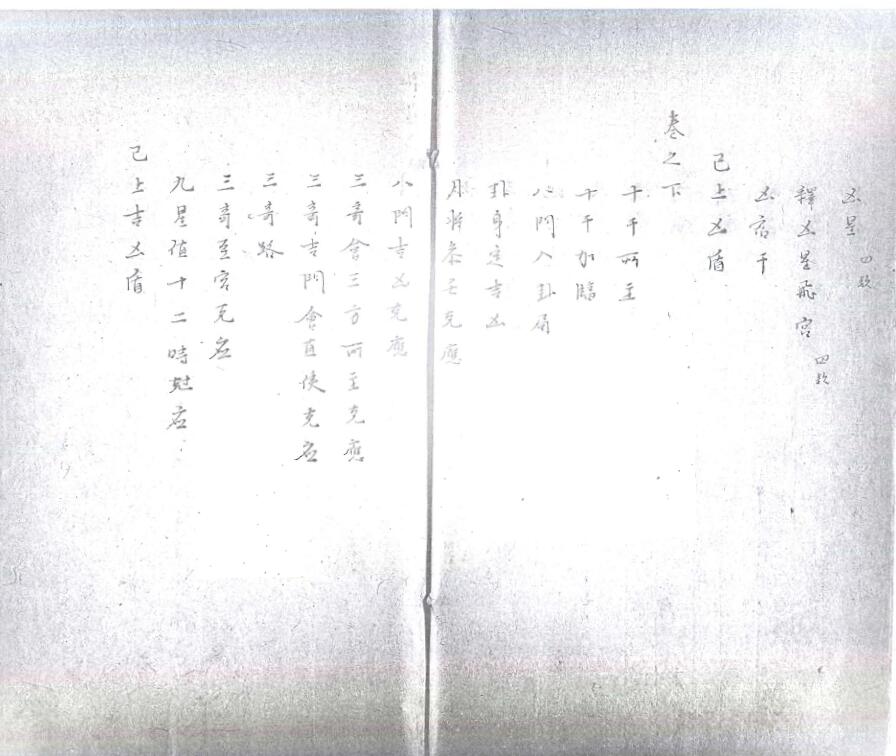 凶星 四款
釋凶星飛宮 四款
凶宿干
已上凶盾
卷之下
十干所主
十干加臨
八門入卦局
卦身定吉凶
月將叅壬克應
八門吉凶克應
三奇會三方所主克應
三奇吉門會直使克应
三奇路
三奇至宮克应
九星值十二時尅应
已上吉凶盾